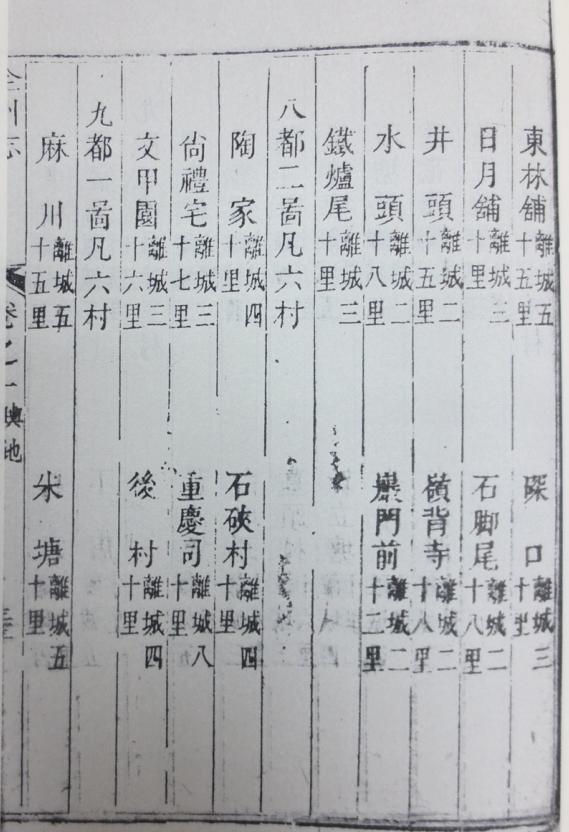 東林舖離城五十五里 口離城三十里
日月舖離城三十里 石脚尾離城二十八里
井頭離城二十五里 嶺背寺離城二十八里
水頭離城二十八里 巖門前離城二十二里
鐵爐尾離城三十里
八都二啚凡六村
陶家離城四十里 石硤村離城四十里
尙禮宅離城三十七里 重慶司離城八十里
文甲園離城三十六里 後村離城四十里
九都一啚凡六村
麻川離城五十五里 塘離城五十里
全州志 卷之一輿地